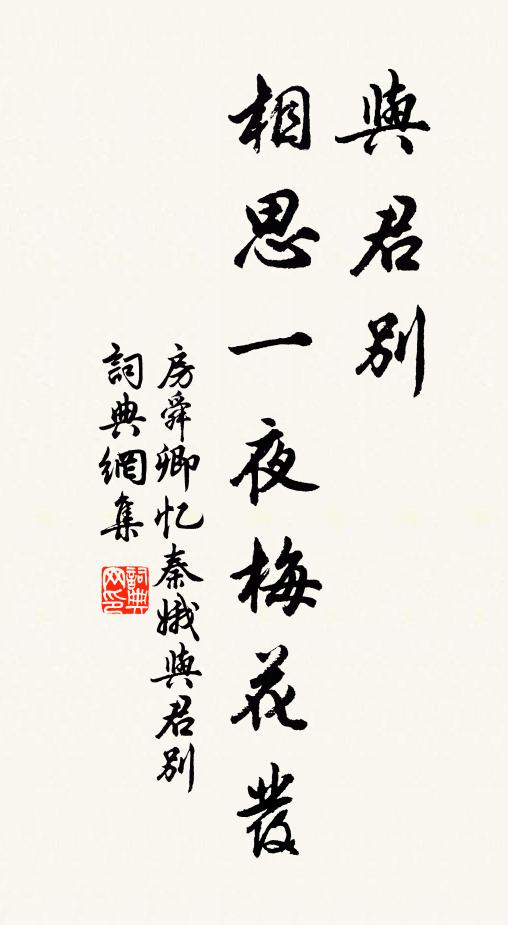 與君別
相思一夜梅花發
房舜卿忆秦娥與君別
詞典網集
詞典網印